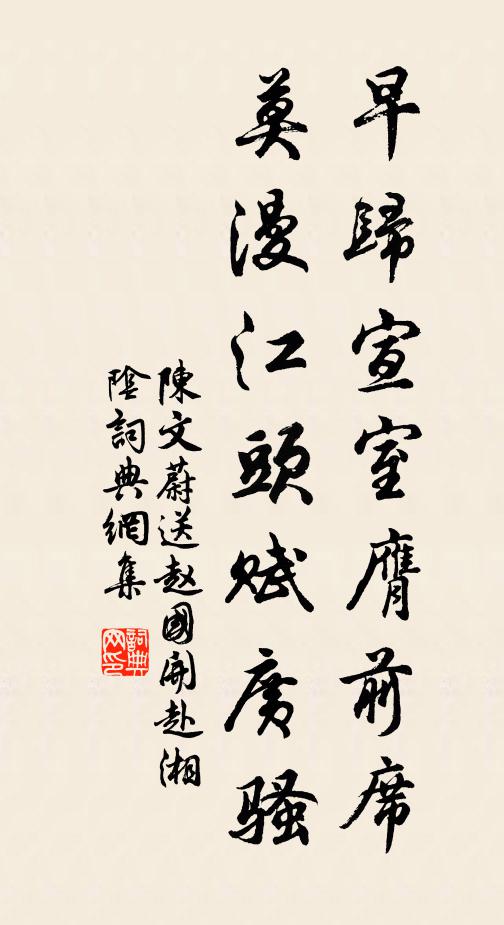 早歸宣室膺前席
莫漫江頭賦廣騷
陳文蔚送赵國開赴湘
陰詞典網集
詞典
网印